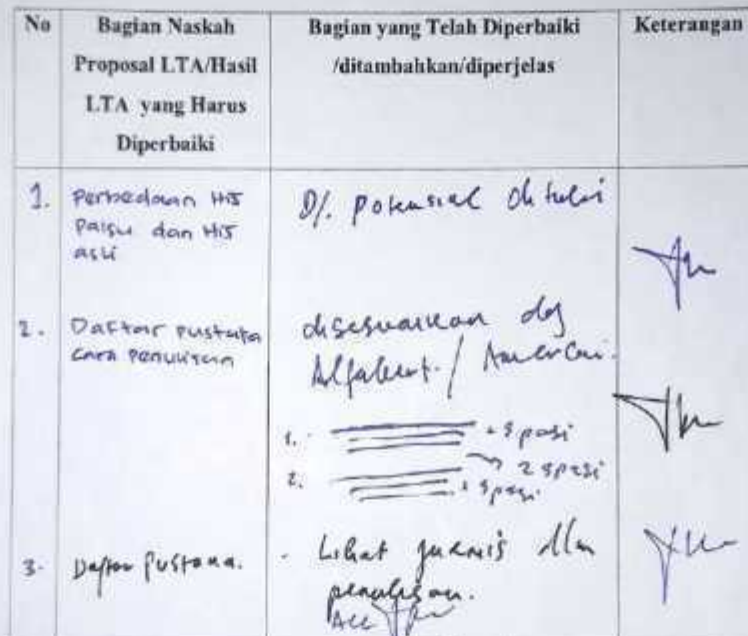 No
Bagian Naskah
Proposal LTA/Hasil
LTA yang Harus
Diperbaiki
Bagian yang Telah Diperbaiki
/ditambahkan/diperjelas
Keterangan
1.
Perbedaan HIS
Palsu dan HIS
asli
D/. potensial ditulis
2.
Daftar pustaka
cara penulisan
disesuaikan dg
Alfabeut. /
1.
1 spasi
2 spasi
2.
1 spasi
3.
Daftar Pustaka.
- Lihat juknis dlm
penulisan.
Acc